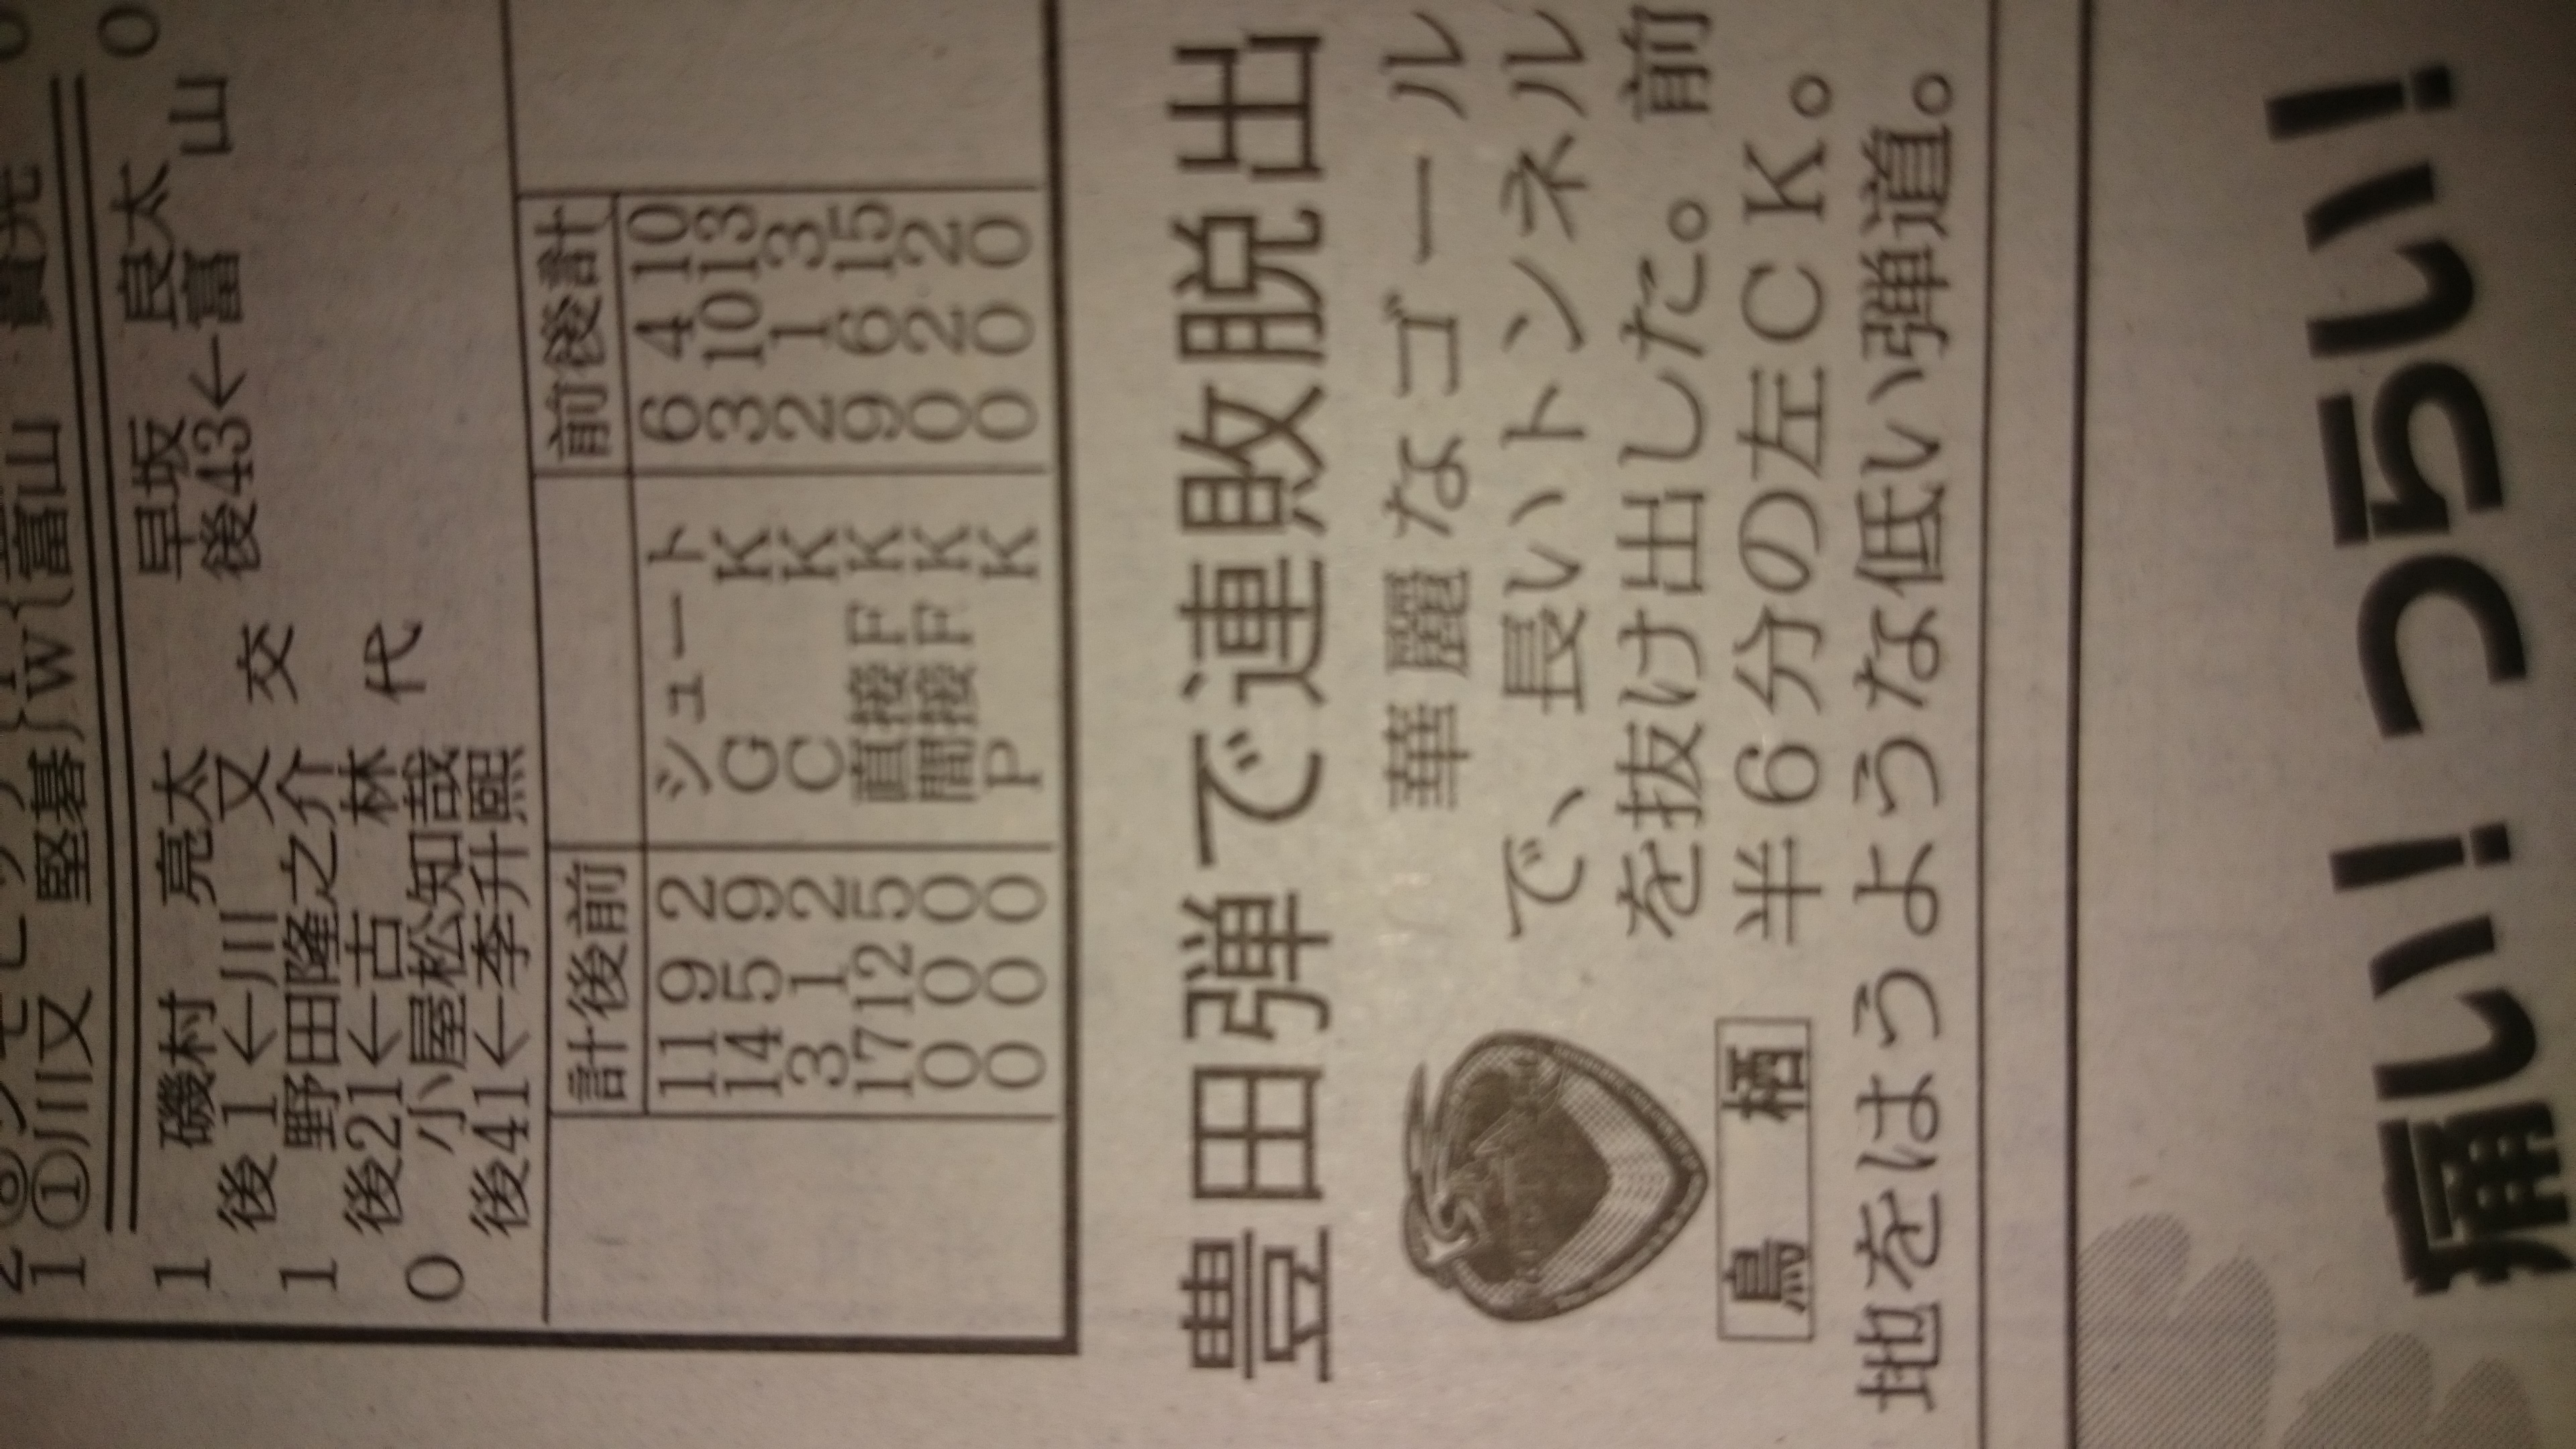 1①川又 堅碁}W{富山
1 磯村 亮太 早坂 良太 0
後1←川又 交 後43←富山
1 野田隆之介
後21←古林 代
0 小屋松知哉
後41←李升煕
計後前 前後計
11 9 2 シュート 6 4 10
14 5 9 GK 3 10 13
3 1 2 CK 2 1 3
17 12 5 直接FK 9 6 15
0 0 0 間接FK 0 2 2
0 0 0 PK 0 0 0
豊田弾で連敗脱出
華麗なゴール
で、長いトンネル
を抜け出した。前
鳥栖
半6分の左CK。
地をはうような低い弾道。
痛い!つらい!